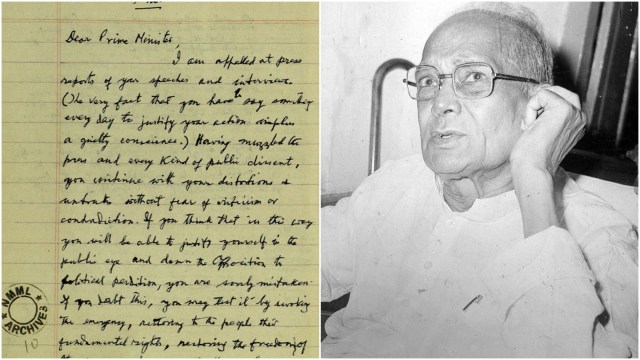 Dear Prime Minister,
I am appalled at press
reports of your speeches and interviews.
(The very fact that you have to say something
every day to justify your action implies
a guilty conscience.) Having muzzled the
press and every kind of public dissent,
you continue with your distortions &
untruths without fear of criticism or
contradiction. If you think that in this way
you will be able to justify yourself in the
public eye and damn the Opposition to
political perdition, you are sorely mistaken.
If you doubt this, you may test it by revoking
the emergency, restoring to the people their
fundamental rights, restoring the freedom of
NMML
ARCHIVES
10